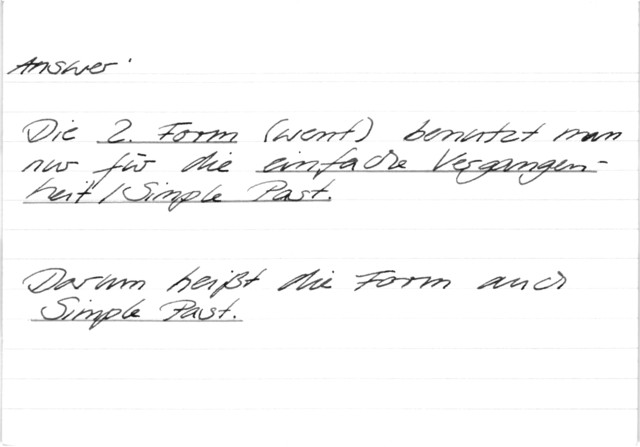 Answer:
Die 2. Form (went) benutzt man
nur für die einfache Vergangen-
heit / Simple Past.
Darum heißt die Form auch
Simple Past.